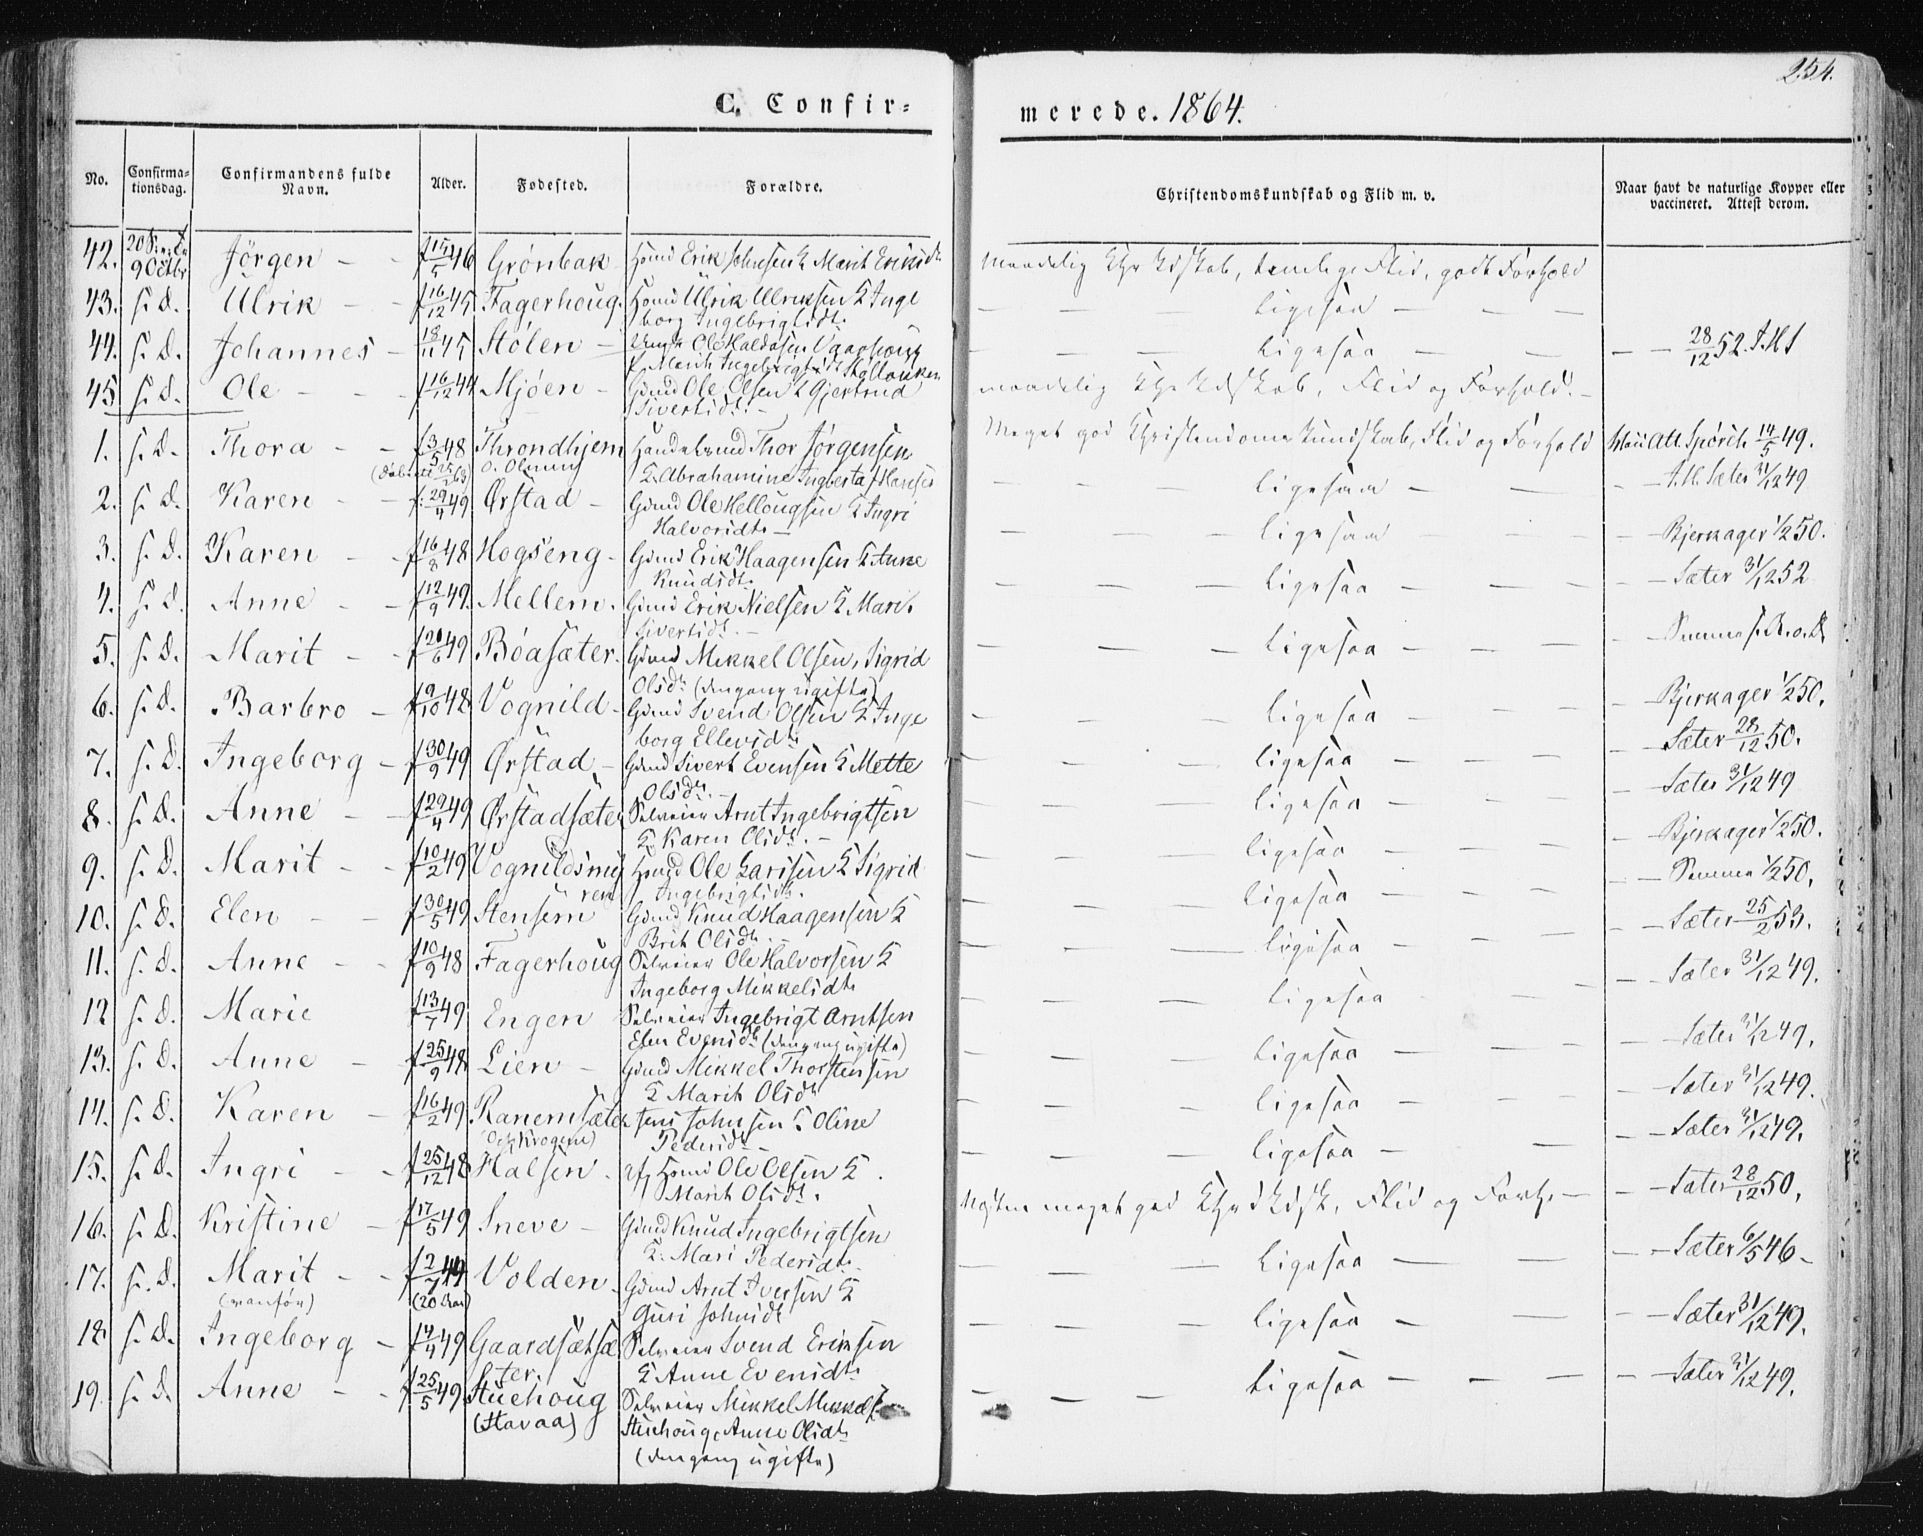 254.
C. Confir- merede. 1864.
No. Confirmationsdag. Confirmandens fulde Navn. Alder. Fødested. Forældre. Christendomskundskab og Flid m. v. Naar havt de naturlige Kopper eller vaccineret. Attest derom.
42. 9 Octbr Jörgen - - f 15/5 46 Grönbak Hmd Erik Johnsen & Marit Eriksdt. Maadelig Chrkdskab, temlige Flid, godt Forhold
43. s. D. Ulrik - - f 16/12 45 Fagerhoug. Hmd Ulrik Ulriksen & Inge
borg Ingebrigtsdt. - - - ligesaa - - -
44. s. D. Johannes - 18/11 45 Stölen - Ole Haldosen
& Marit Ingebrigtsdt - - - ligesaa - - - - 28/12 52.
45 s. D. Ole - - - f 16/12 44 Mjöen - Gmd Ole Olsen & Gjertrud
Sivertsdt. - maadelig Chrkdskab, Flid og Forhold. -
1. s. D. Thora - - f 3/5 48 Throndhjem Thor Jörgensen
& Abrahamine Ingberta Hansen Meget god Christendomskundskab, Flid og Forhold Att. Spörck 14/5 49.
2. s. D. Karen - - f. 29/4 49 Ørstad - Gmd Ole Hellougsen & Ingri
Halvorsdt. - - - - ligesaa - - Sæter 31/12 49
3. s. D. Karen - - f 16/8 48 Hogseng - Gmd Erik Haagensen & Anne
Knudsdt. - - - ligesaa - - - - Bjerkager 1/2 50.
4. s. D. Anne - - f 12/9 49. Mellem. Gmd Erik Nielsen & Marit
Sivertsdt. - - - - ligesaa - - - - Sæter 31/12 52
5. s. D. Marit - - f 20/6 49 Böasæter. Gmd Mikkel Olsen, Sigrid
Olsdt. (dengang ugifte) - - - ligesaa - - - - Samme
6. s. D. Barbro - f 9/10 48 Vognild - Gmd Svend Olsen & Inge
borg Ellevsdt. - - - ligesaa - - - - Bjerkager 1/2 50.
7. s. D. Ingeborg - f 30/9 49 Ørstad - Gmd Sivert Evensen & Mette
Olsdt. - - - - ligesaa - - - - Sæter 28/12 50.
8. s. D. Anne - f 29/4 49 Ørstadsæter Selveier Arnt Ingebrigtsen
& Karen Olsdt. - - - - ligesaa - - - - Sæter 31/12 49
9. s. D. Marit - f 10/2 49 Vognildsmy
ren Hmd Ole Larssen & Sigrid
Ingebrigtsdt. - - - ligesaa - - - - Bjerkager 1/2 50.
10. s. D. Elen - - f 30/5 49 Stensem Gmd Knud Haagensen &
Brit Olsdt. - - - ligesaa - - - - Samme 1/2 50.
11. s. D. Anne - - f 10/9 48 Fagerhoug Selveier Ole Halvorsen &
Ingeborg Mikkelsdt. - - - ligesaa - - - - Sæter 25/2 53.
12 s. D. Marie f 13/7 49 Engen Selveier Ingebrigt Arntsen
Elen Evensdt. (dengang ugifte) - - - ligesaa - - - Sæter 31/12 49.
13. s. D. Anne - f 25/9 48 Lien - Gmd Mikkel Thorstensen
& Marit Olsdt. - - - ligesaa - - - - Sæter 31/12 49.
14. s. D. Karen - f 16/2 49. Ranemsæter Jens Johnsen & Oline
Pedersdt. - - - - ligesaa - - - - Sæter 31/12 49.
15. s. D. Ingri - - f 25/12 48 Halsen - Hmd Ole Olsen &
Marit Olsdt. - - - ligesaa - - - - Sæter 31/12 49.
16. s. D. Kristine - f 17/5 49 Sneve - Gmd Knud Ingebrigtsen
& Mari Pedersdt. Næsten meget god Chrdkdsk, Flid og Forh. - - Sæter 28/12 50.
17. s. D. Marit - - f 2/7 44 Volden - Gmd Arnt Iversen &
(vanför) (20 Aar) Guri Johnsdt - - - ligesaa - - - - Sæter 6/5 46 -
18 s. D. Ingeborg - f 4/4 49 Gaardsætsæ
ter. Selveier Svend Eriksen
& Anne Evensdt. - - - ligesaa - - - - Sæter 31/12 49.
19. s. D. Anne - - f 25/5 49 Stuehoug
(Stavaa) Selveier Mikkel Mikkels.
Stuehoug, Anne Olsdt.
(dengang ugifte) - - - ligesaa - - - - Sæter 31/12 49.